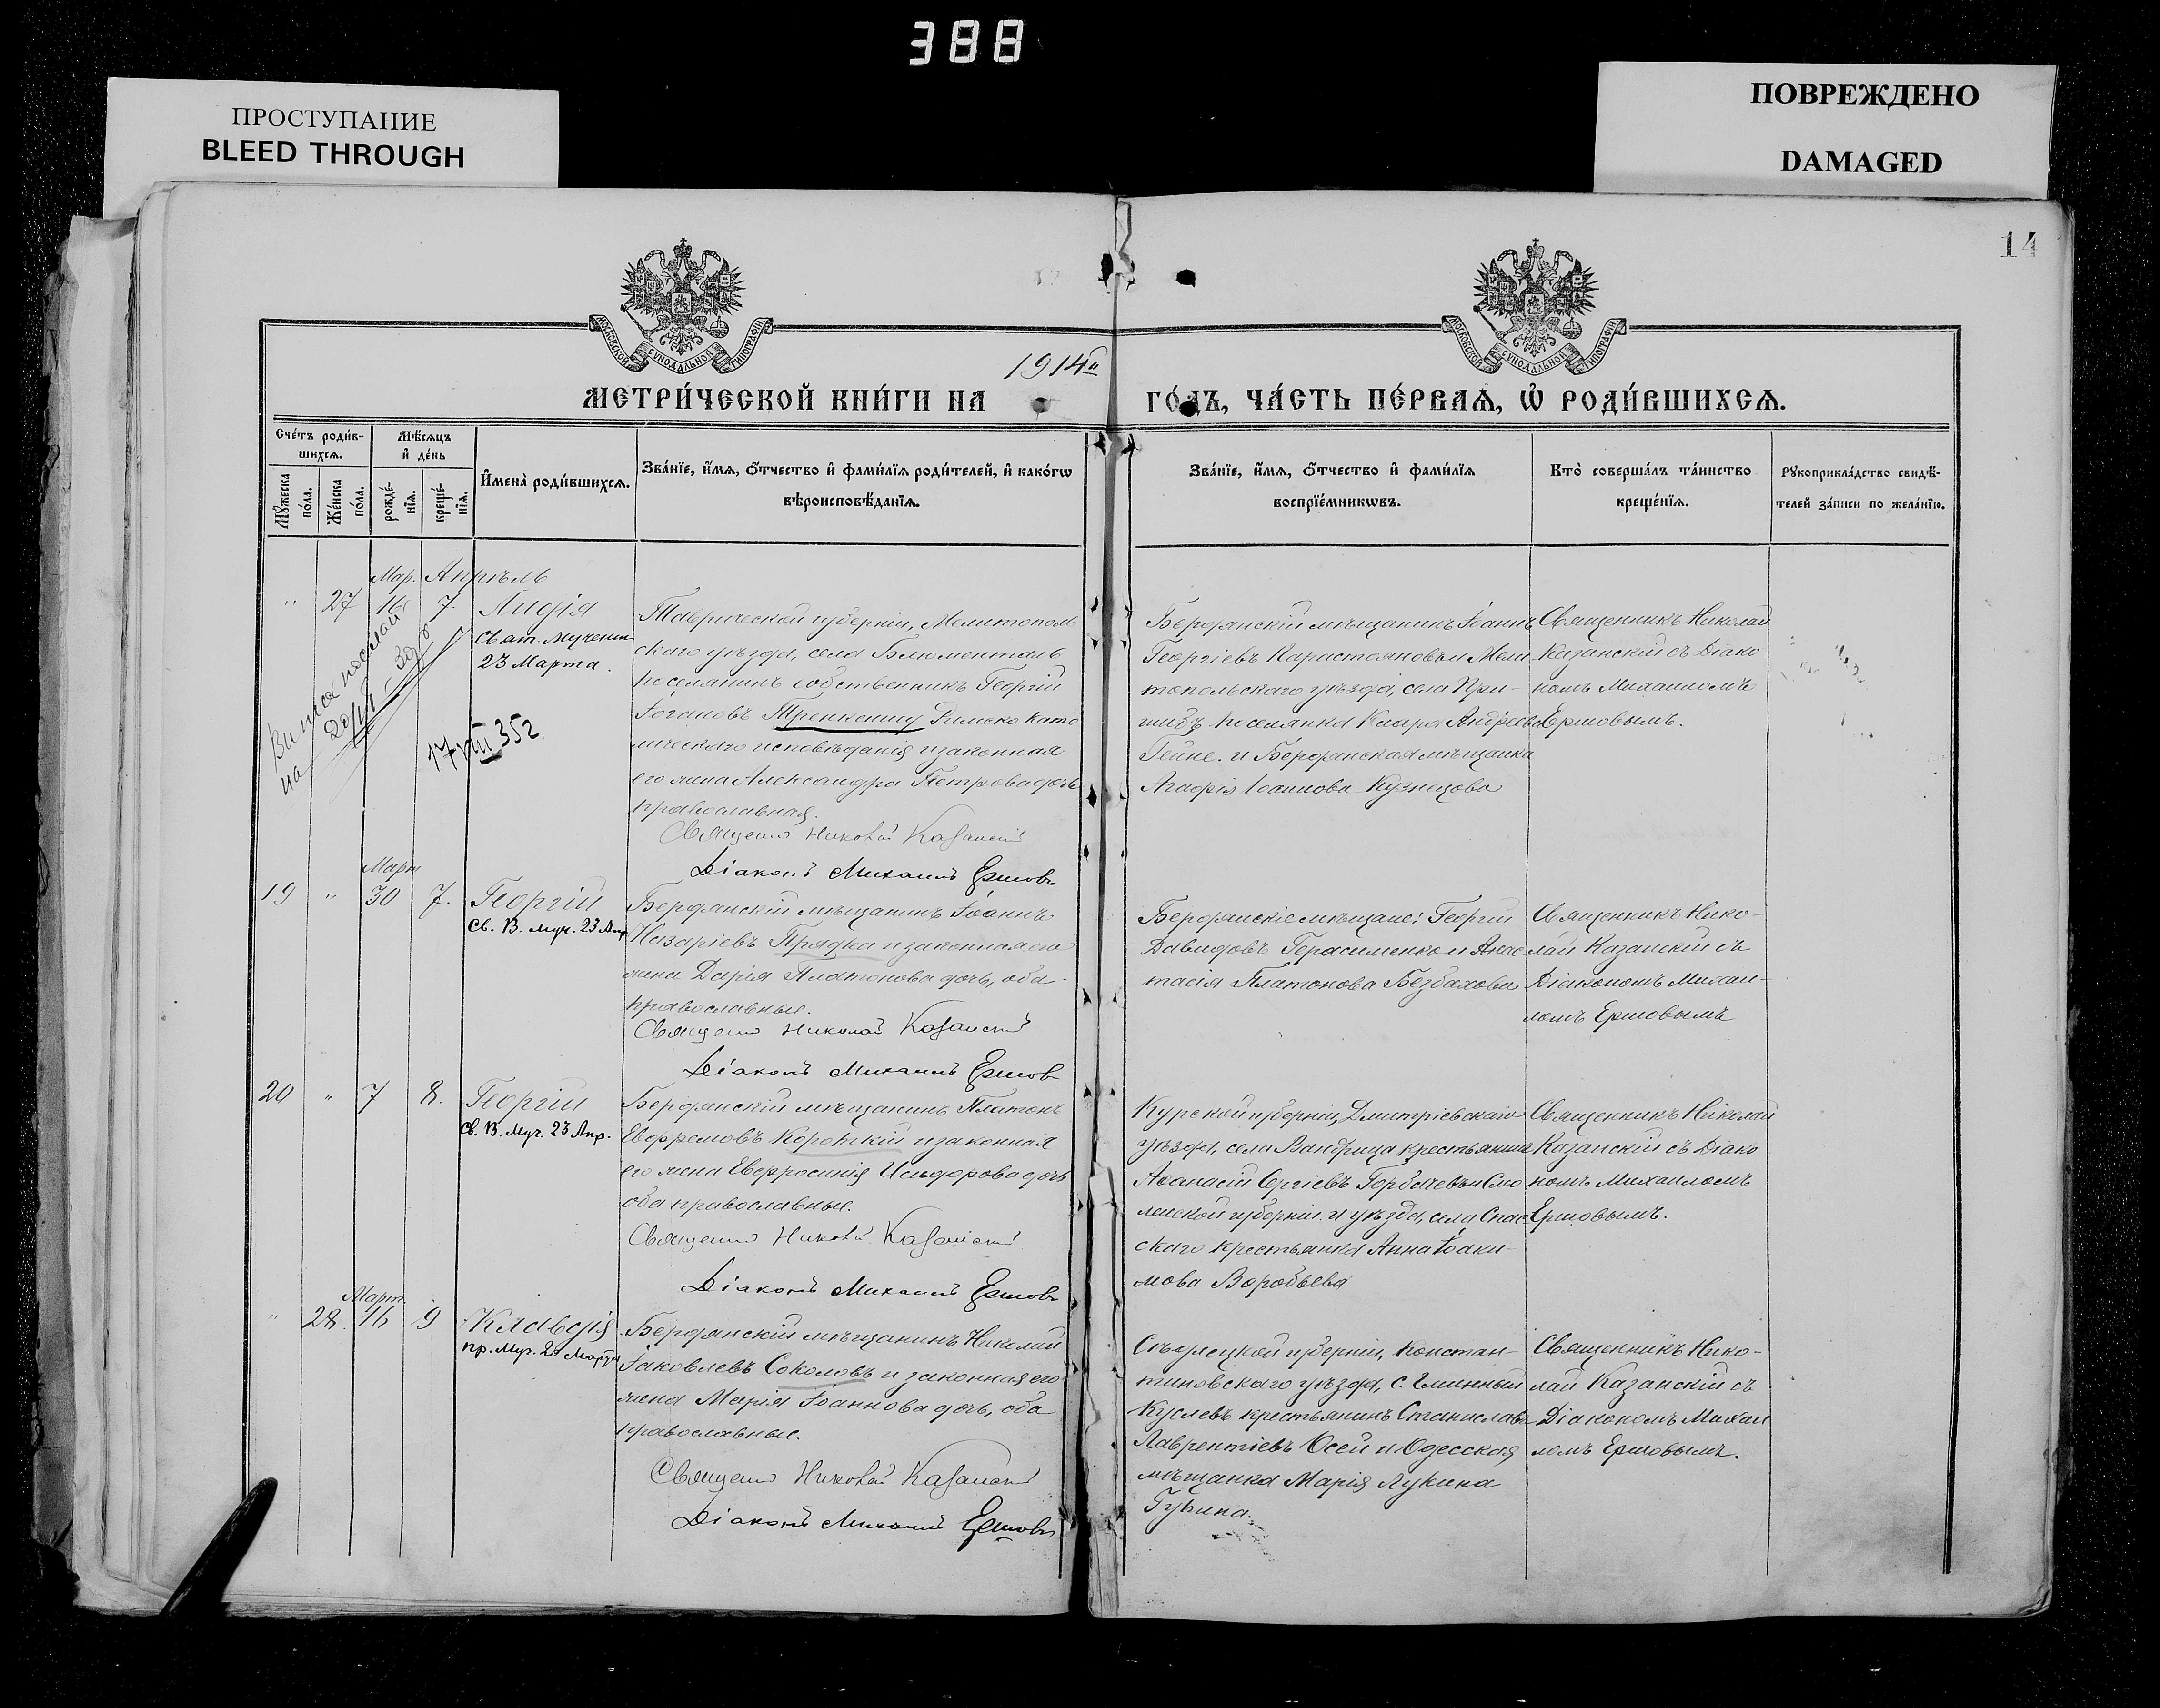 388
ПРОСТУПАНИЕ
BLEED THROUGH
ПОВРЕЖДЕНО
DAMAGED
14
МОСКОВСКОЙ СѴНОДАЛЬНОЙ ТИПОГРАФІИ
МОСКОВСКОЙ СѴНОДАЛЬНОЙ ТИПОГРАФІИ
1914й
МЕТРИ́ЧЕСКОЙ КНИ́ГИ НА
ГО́ДЪ, ЧА́СТЬ ПЕ́РВАѦ, Ѡ҆ РОДИ́ВШИХСѦ.
Сче́тъ роди́в-
шихсѧ.
Мѣ́сѧцъ
и҆ де́нь
Мꙋ́жеска
по́ла.
Же́нска
по́ла.
рожде́-
нїѧ.
креще́-
нїѧ.
И҆мена̀ роди́вшихсѧ.
Зва́нїе, и҆́мѧ, ѻ҆́тчество и҆ фами́лїѧ роди́телей, и҆ како́гѡ
вѣроисповѣ́данїѧ.
Зва́нїе, и҆́мѧ, ѻ҆́тчество и҆ фами́лїѧ
воспрїе́мникѡвъ.
Кто̀ соверша́лъ та́инство
креще́нїѧ.
Рꙋкоприкла́дство свидѣ́-
телей за́писи по жела́нїю.
Мар. Апрѣль
" 27 16 7. Лидія
Свят. Мучениц
23 Марта.
на
17 VIII 352
Таврической губерніи, Мелитополь
скаго уѣзда, села Блюменталь
поселянинъ собственникъ Георгій
Іогановъ Римско като
лическаго исповѣданія и законная
его жена Александра Петрова дочь
православная.
Священ Николай Казанскій
Діаконъ Михаилъ Ершовъ
Бердянскій мѣщанинъ Іоаннъ
Георгіевъ Карастояновъ и Мели
топольскаго уѣзда, села При-
шибъ поселянка Клара Андреева
Гейне. и Бердянская мѣщанка
Агафія Іоаннова Кузнецова
Священникъ Николай
Казанскій съ Діако
номъ Михаиломъ
Ершовымъ.
Март
19 " 30 7. Георгій
Св. В. муч. 23 Апр
Бердянскій мѣщанинъ Іоаннъ
Назаріевъ Прядка и законная его
жена Дарія Платонова дочь, оба
православные.
Священ Николай Казанскій
Діаконъ Михаилъ Ершовъ
Бердянскіе мѣщане: Георгій
Давидовъ Герасименко и Анас
тасія Платонова Безбахова
Священникъ Нико-
лай Казанскій съ
Діакономъ Михаи-
ломъ Ершовымъ
20 " 7 8. Георгій
Св. В. Муч. 23 Апр.
Бердянскій мѣщанинъ Платонъ
Евфремовъ Короткій и законная
его жена Евфросинія Исидорова дочь
оба православные.
Священ Николай Казанскій
Діаконъ Михаилъ Ершовъ
Курской губерніи, Дмитріевскаго
уѣзда, села крестьянинъ
Афанасій Сергіевъ Горбачевъ и Смо
ленской губерніи. и уѣзда, села Спас
скаго крестьянка Анна Іоаки-
мова Воробьева
Священникъ Николай
Казанскій съ Діако
номъ Михаиломъ
Ершовымъ.
Март
" 28. 16 9 Клавдія
пр. Муч. 20 Марта
Бердянскій мѣщанинъ Николай
Іаковлевъ Соколовъ и законная его
жена Марія Іоаннова дочь, оба
православные.
Священ Николай Казанскій
Діаконъ Михаилъ Ершовъ
Сѣдлецкой губерніи, Констан-
тиновскаго уѣзда, с.
крестьянинъ Станиславъ
Лаврентіевъ Осей и Одесская
мѣщанка Марія Лукина
Священникъ Нико-
лай Казанскій съ
Діакономъ Михаи
ломъ Ершовымъ.